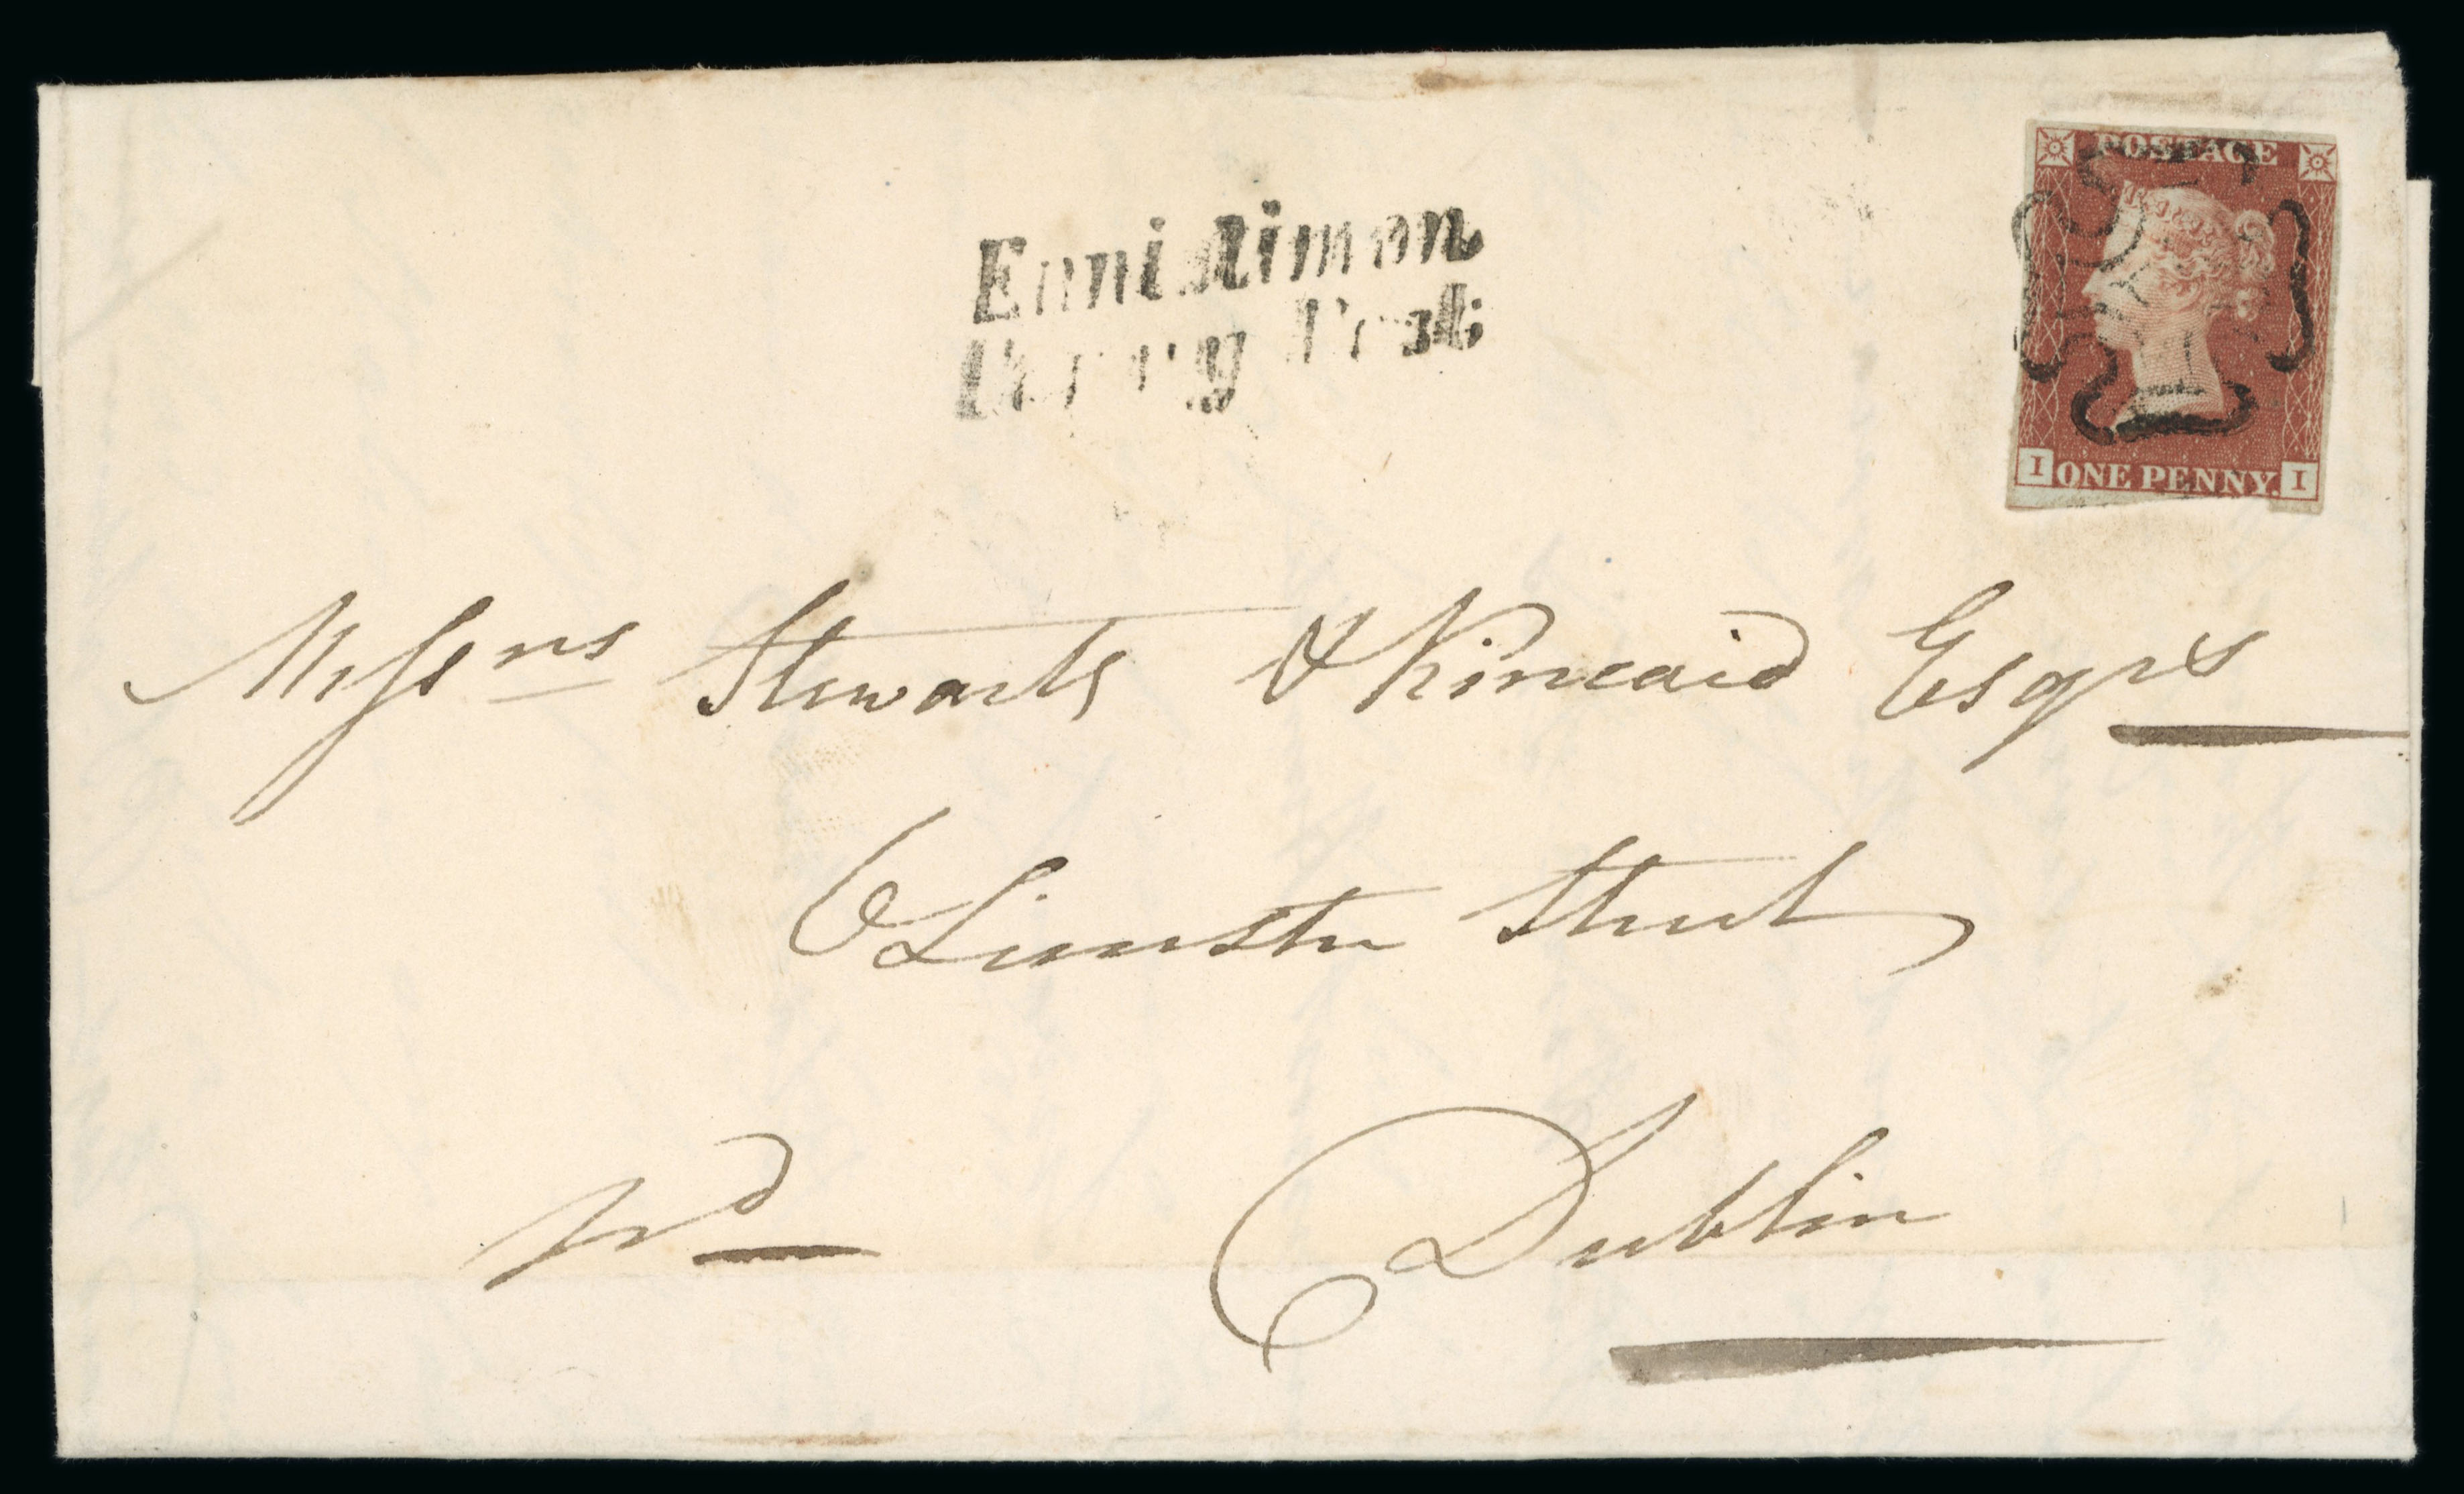 POSTAGE
Ennistimon
Penny Post
I ONE PENNY. I
Messrs Stewarts & Kincaid Esqrs
6 Leinster Street
Pd Dublin